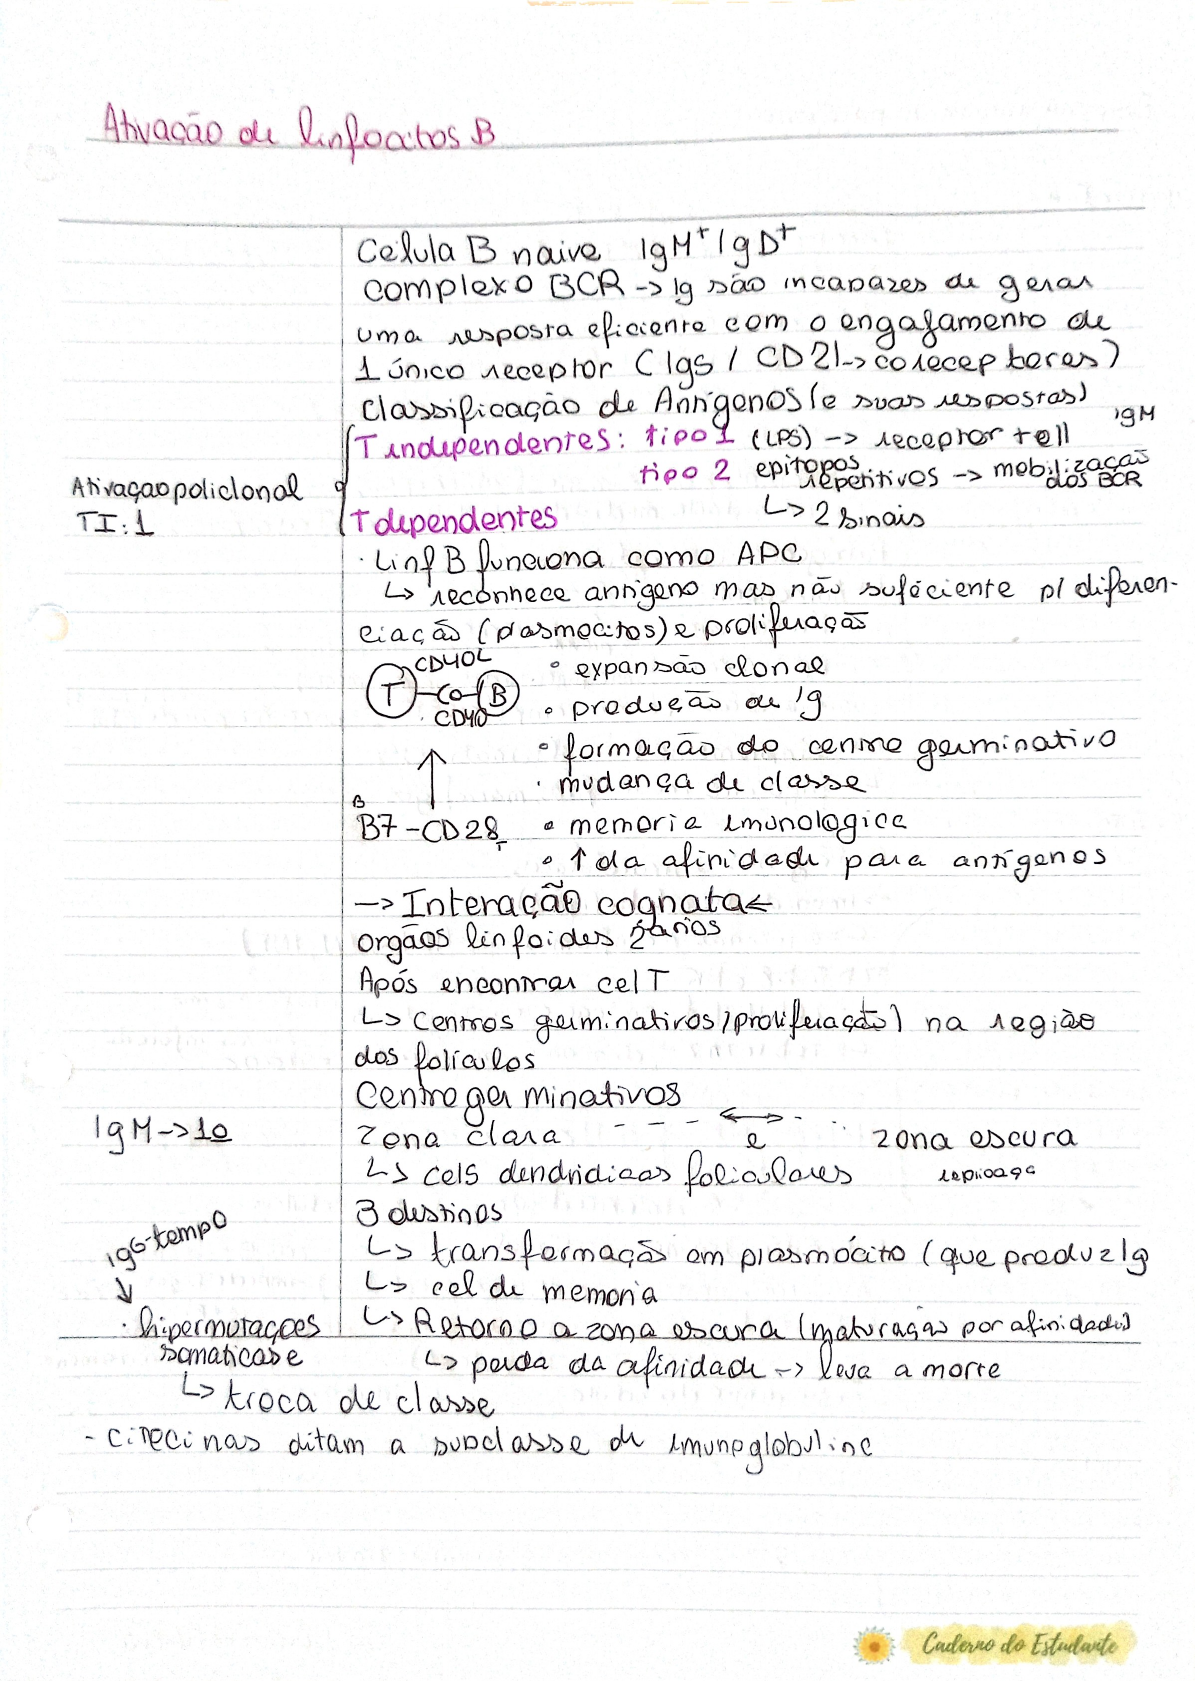 Ativação de linfocitos B
Celula B naive IgM+ IgD+
complexo BCR -> Ig são incapazes de gerar
uma resposta eficiente com o engajamento de
1 único receptor (Igs / CD21-> coreceptores)
Classificação de Antígenos (e suas respostas)
IgM
T independentes: tipo 1 (LPS) -> receptor toll
tipo 2 epitopos repetitivos -> mobilização dos BCR
Ativaçao policlonal
TI: 1
↳ 2 sinais
T dependentes
· Linf B funciona como APC
↳ reconhece antígeno mas não suficiente p/ diferen-
ciação (plasmocitos) e proliferação
CD40L
T - co - B
CD40
• expansão clonal
• produção de Ig
• formação do centro germinativo
· mudança de classe
B
B7 - CD28 T
• memoria imunologica
• ↑ da afinidade para antígenos
-> Interação cognata <-
orgãos linfoides 2ários
Após encontrar cel T
↳ centros germinativos (proliferação) na região
dos folículos
Centro germinativos
IgM -> 1o
Zona clara - - - ↔ - · · e zona escura
↳ cels dendridicas foliculares replicaça
3 destinos
IgG - tempo
↓
↳ transformação em plasmócito (que produz Ig
↳ cel de memoria
↳ Retorno a zona escura (maturação por afinidade)
· hipermutaçoes
somaticas e
↳ perda da afinidade -> leva a morte
↳ troca de classe
- citocinas ditam a subclasse de imunoglobulina
Caderno do Estudante